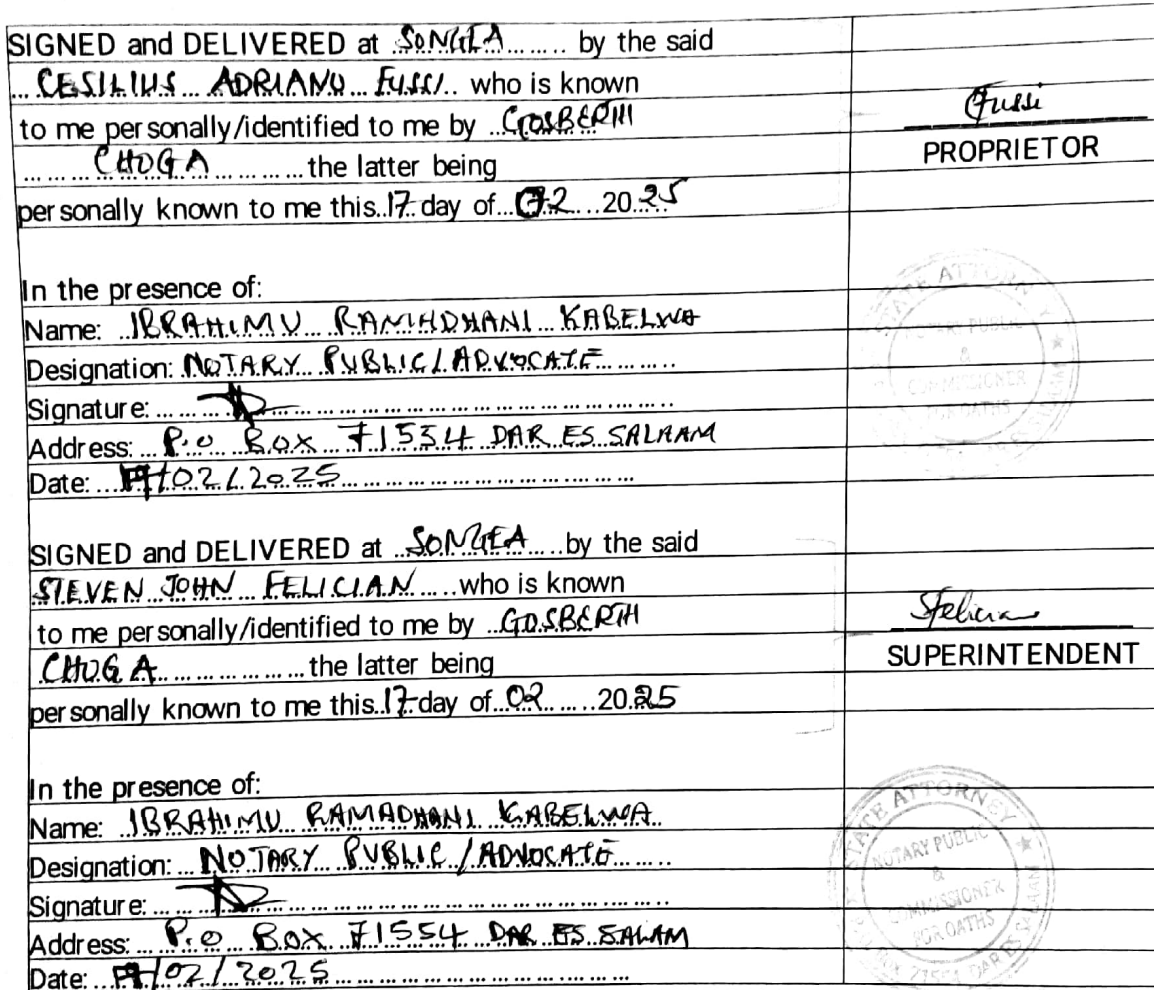 SIGNED and DELIVERED at SONGEA by the said
CESILIUS ADRIANO FUSSI who is known
to me personally/identified to me by GOSBERTH
CHOGA the latter being
personally known to me this 17 day of 02 2025
Fussi
PROPRIETOR
In the presence of:
Name: IBRAHIMU RAMHDHANI KABELWA
Designation: NOTARY PUBLIC/ADVOCATE
Signature:
Address: P.O BOX 71554 DAR ES SALAAM
Date: 17/02/2025
STATE ATTORNEY
NOTARY PUBLIC
&
COMMISSIONER
FOR OATHS
SIGNED and DELIVERED at SONGEA by the said
STEVEN JOHN FELICIAN who is known
to me personally/identified to me by GOSBERTH
CHOGA the latter being
personally known to me this 17 day of 02 2025
Sfelician
SUPERINTENDENT
In the presence of:
Name: IBRAHIMU RAMADHANI KABELWA
Designation: NOTARY PUBLIC/ADVOCATE
Signature:
Address: P.O BOX 71554 DAR ES SALAM
Date: 17/02/2025
STATE ATTORNEY
NOTARY PUBLIC
&
COMMISSIONER
FOR OATHS